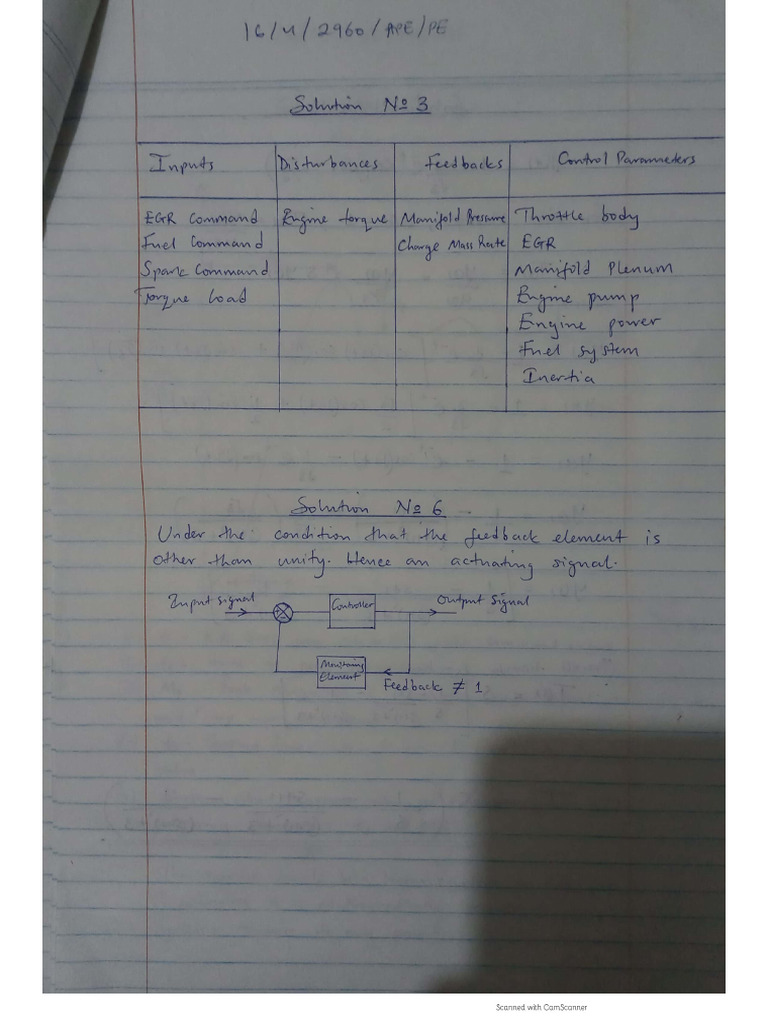 16/U/2960/APE/PE
Solution No 3
Inputs Disturbances Feedbacks Control Parameters
EGR Command Engine torque Manifold Pressure Throttle body
Fuel Command Charge Mass Rate EGR
Spark Command Manifold Plenum
Torque Load Engine pump
Engine power
Fuel system
Inertia
Solution No 6
Under the condition that the feedback element is
other than unity. Hence an actuating signal.
Input signal Controller Output Signal
Monitoring
Element
Feedback ≠ 1
Scanned with CamScanner